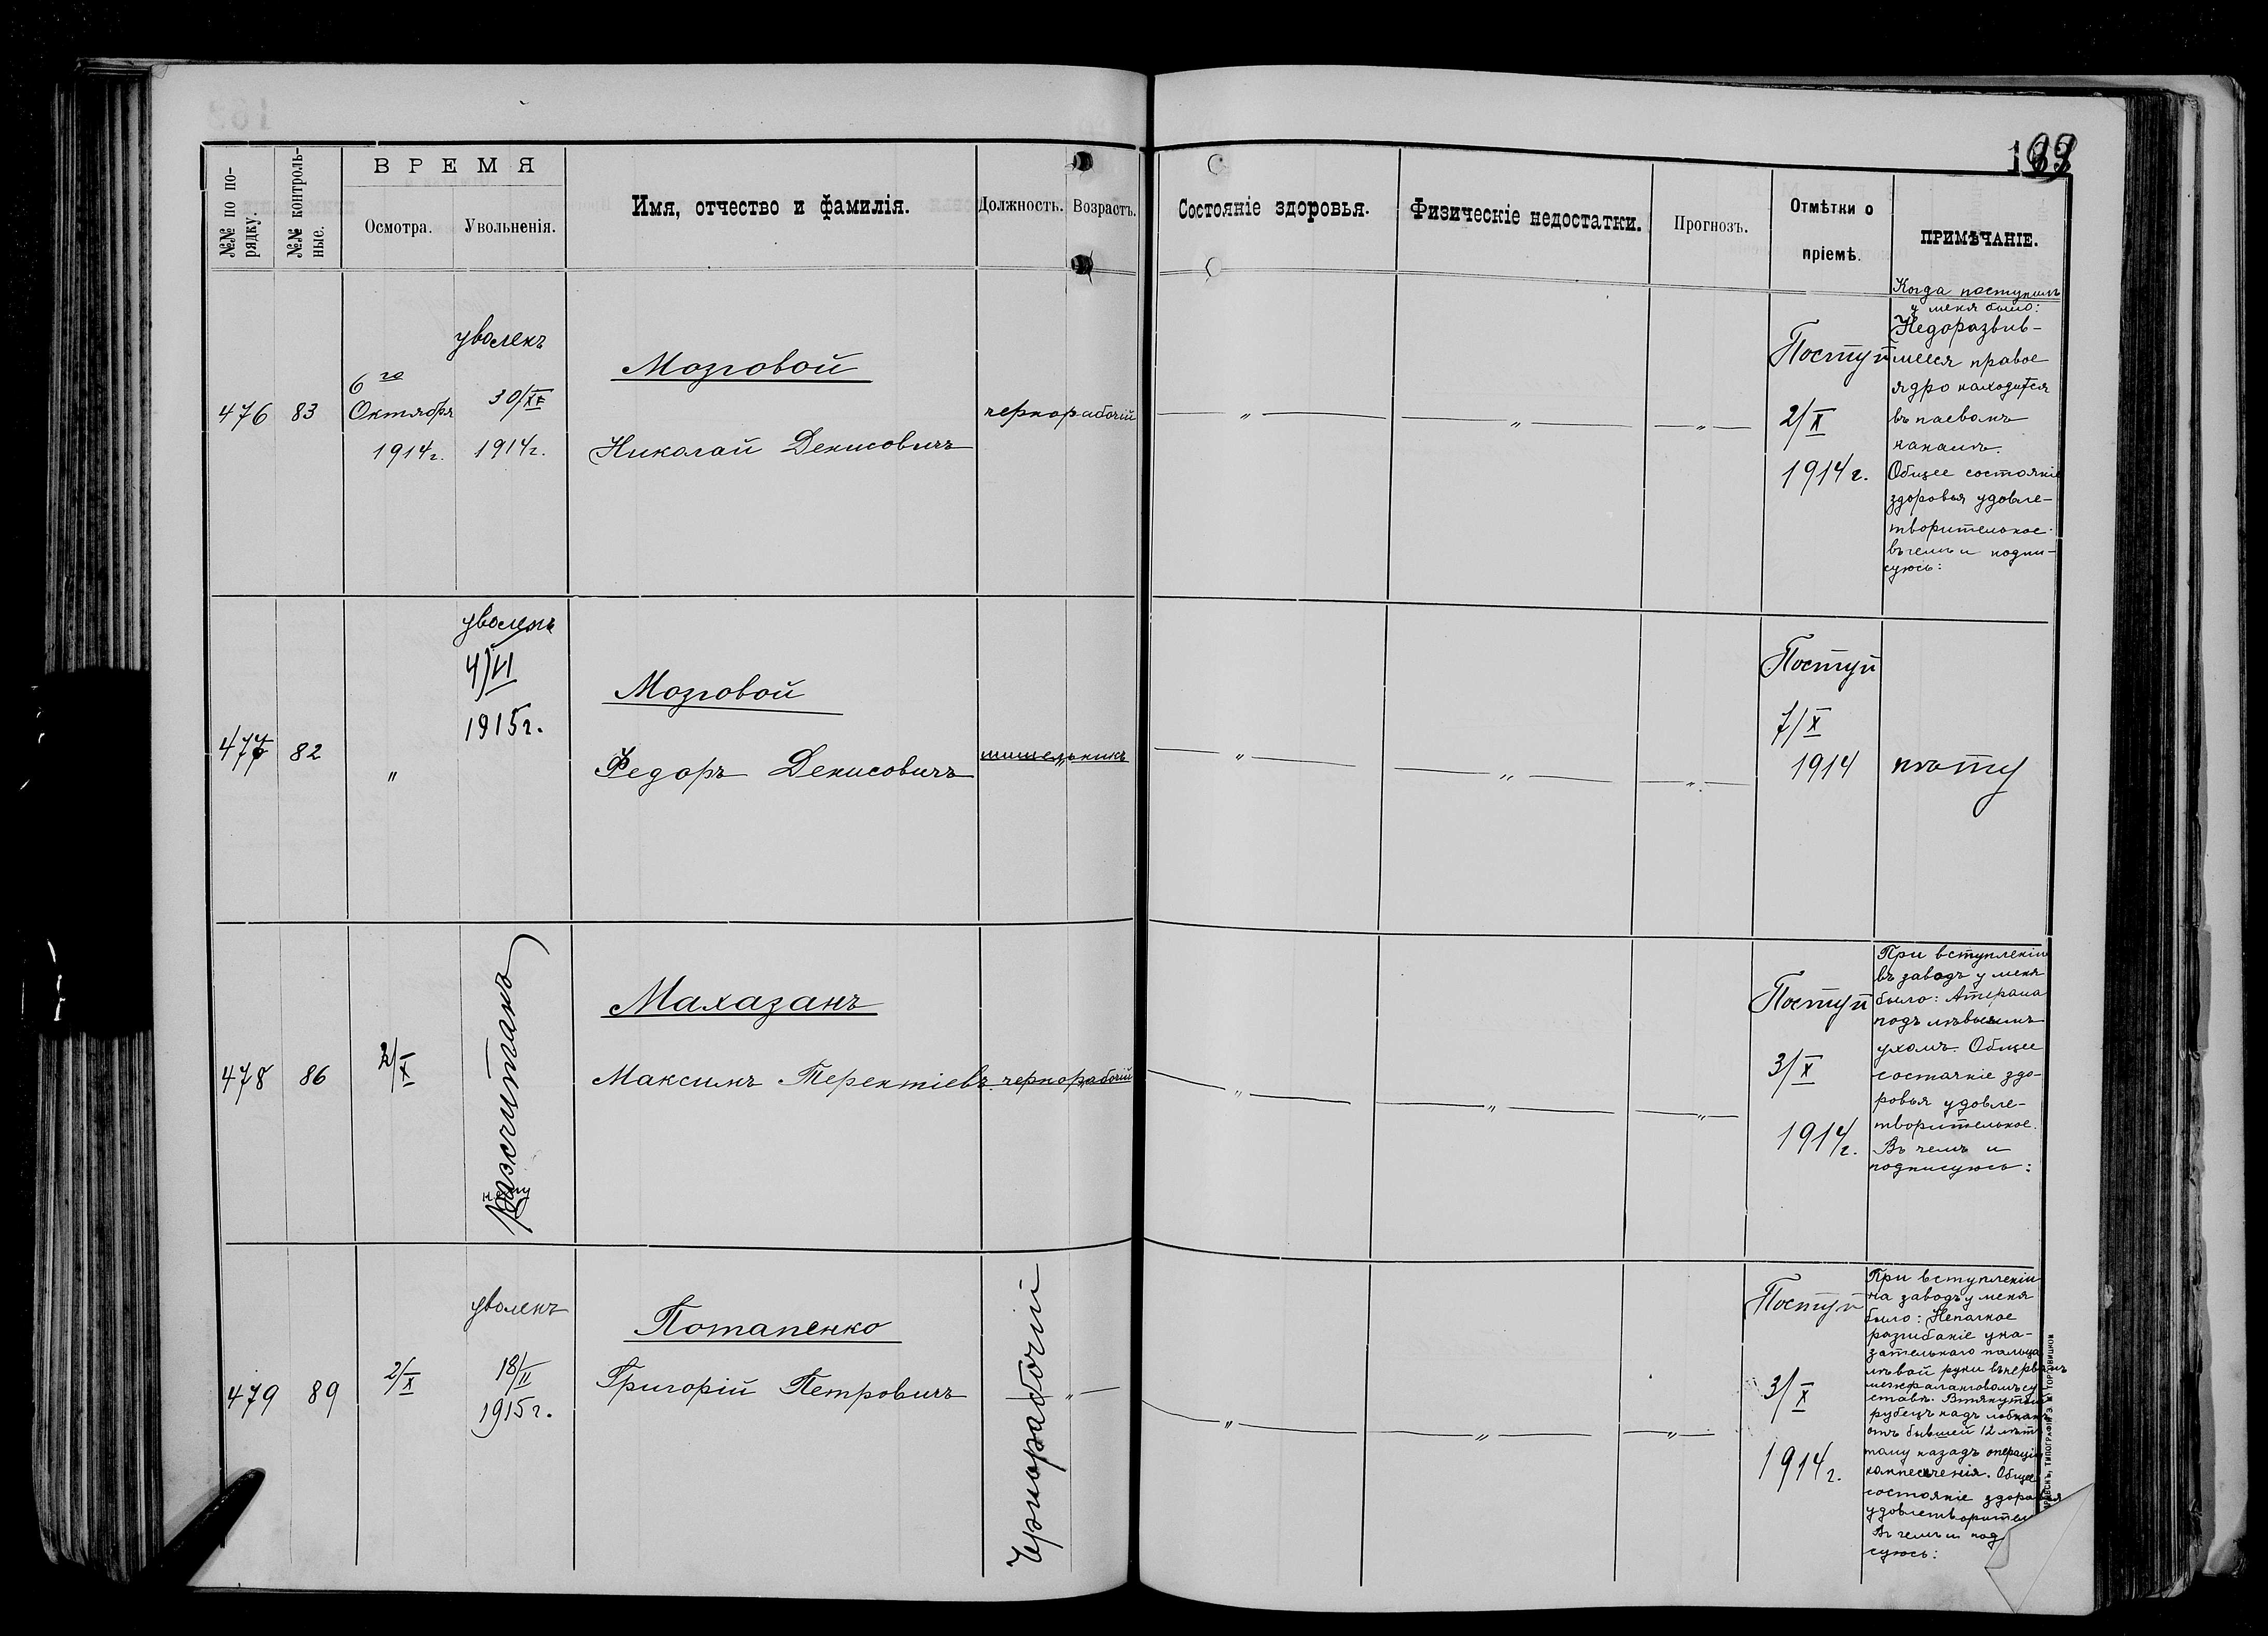 №№ по по-
рядку.
№№ контроль-
ные.
ВРЕМЯ
Осмотра.
Увольненія.
Имя, отчество и фамилія.
Должность.
Возрастъ.
Состояніе здоровья.
Физическіе недостатки.
Прогнозъ.
Отмѣтки о
пріемѣ.
ПРИМѢЧАНІЕ.
476
83
6го
Октября
1914г.
уволенъ
30/XI
1914г.
Мозговой
Николай Денисовичъ
чернорабочій
— „ —
— „ —
— „ —
Поступ
2/X
1914г.
Когда поступилъ
у меня было:
Недоразвив-
шееся правое
ядро находится
въ паховъ
каналѣ.
Общее состояніе
здоровья удовле-
творительное
въ чемъ и подпи-
суюсь:
477
82
„
уволенъ
4/VI
1915г.
Мозговой
Федоръ Денисовичъ
шишельникъ
— „ —
— „ —
— „ —
Поступ
7/X
1914
нѣту
478
86
2/X
Разсчитанъ
Малазанъ
Максимъ Терентіевъ
чернорабочій
— „ —
— „ —
— „ —
Поступ
3/X
1914г.
При вступленіи
въ заводъ у меня
было: Атерама
подъ лѣвымъ
ухомъ. Общее
состояніе здо-
ровья удовле-
творительное.
Въ чемъ и
подписуюсь:
479
89
2/X
уволенъ
18/II
1915г.
Потапенко
Григорій Петровичъ
Чернорабочій
„ —
— „ —
— „ —
— „ —
Поступ
3/X
1914г.
При вступленіи
на заводъ у меня
было: Неполное
разгибаніе ука-
зательнаго пальца
лѣвой руки въ первомъ
межфаланговомъ су-
ставѣ. Втянутый
рубецъ надъ лобкомъ
отъ бывшей 12 лѣтъ
тому назадъ операціи
камнесѣченія. Общее
состояніе здоровья
удовлетворител
Въ чемъ и под
суюсь: